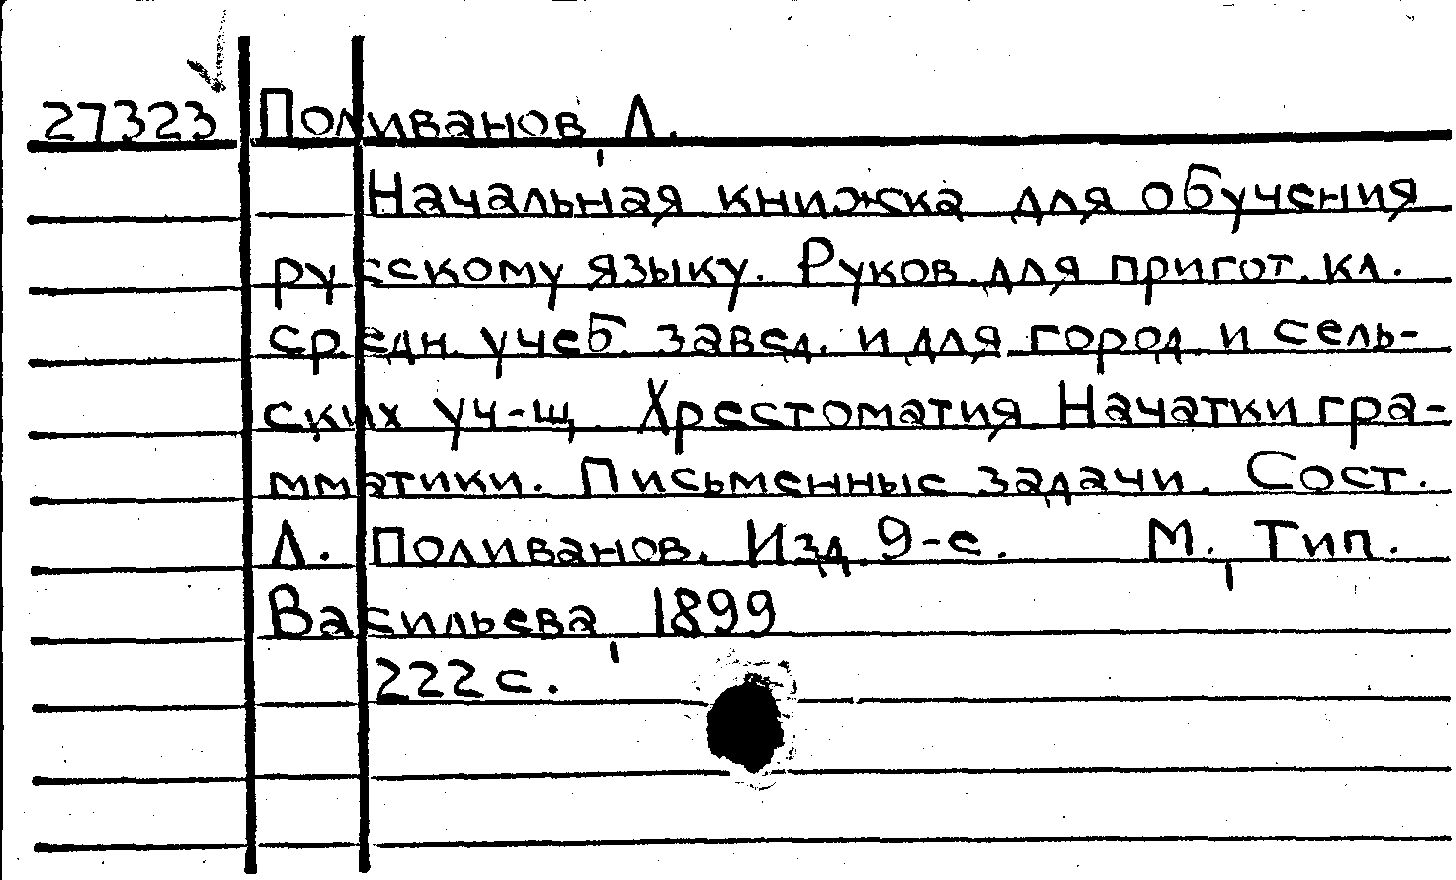 27323 Поливанов, Л.
Начальная книжка для обучения
русскому языку. Руков. для пригот. кл.
средн. учеб. завед. и для город. и сель-
ских уч-щ. Хрестоматия. Начатки гра-
мматики. Письменные задачи. Сост.
Л. Поливанов. Изд. 9-е. М., Тип.
Васильева, 1899
222 с.